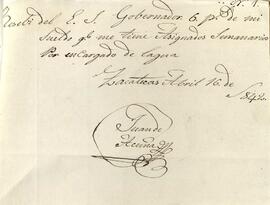 Recibi del E. S. Gobernador 6 p.s de mi
sueldo q.e me tiene Asignados Semanarios
Por encargado de
Zacatecas Abril 16 de
Juan de
Acuña